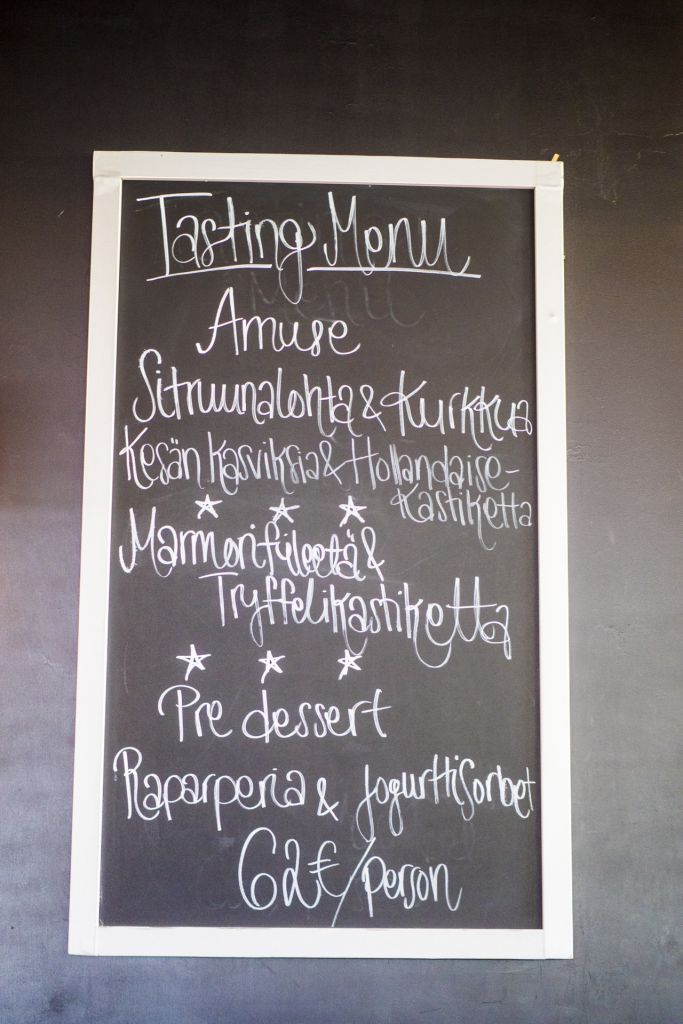 Tasting Menu
Amuse
Sitruunalohta & Kurkkua
Kesän kasviksia & Hollandaise-
kastiketta
Marmorifileetä &
Tryffelikastiketta
Pre dessert
Raparperia & jogurttisorbet
62€/person